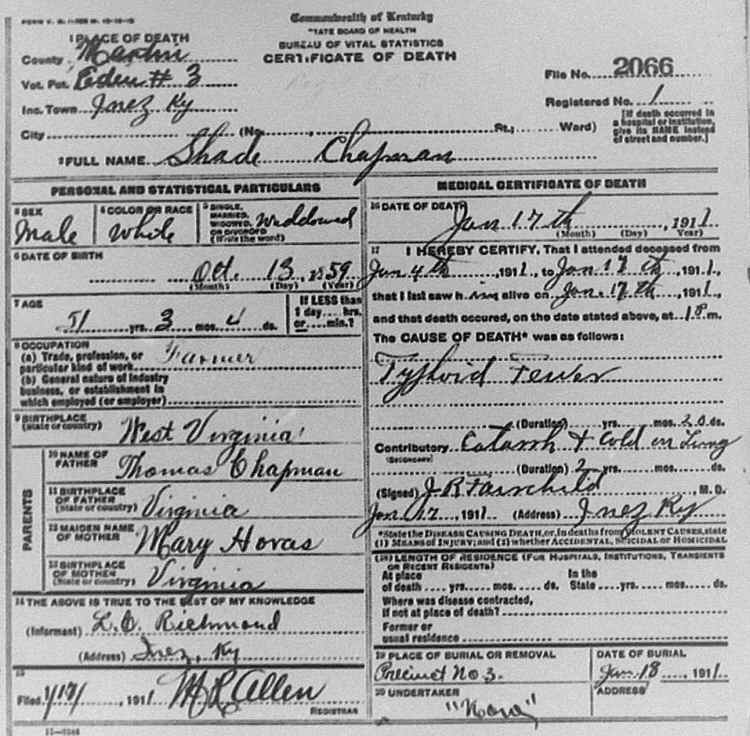 Commonwealth of Kentucky
STATE BOARD OF HEALTH
BUREAU OF VITAL STATISTICS
CERTIFICATE OF DEATH
1 PLACE OF DEATH
County Martin
Vot. Pct. Eden # 3
Inc. Town Inez Ky
City (No. , St.; Ward)
File No. 2066
Registered No. 1
[If death occurred in a hospital or institution, give its NAME instead of street and number.]
2 FULL NAME Shade Chapman
PERSONAL AND STATISTICAL PARTICULARS
3 SEX Male
4 COLOR OR RACE White
5 SINGLE, MARRIED, WIDOWED, OR DIVORCED (Write the word) Widdowed
6 DATE OF BIRTH
Oct. 13, 1859
(Month) (Day) (Year)
7 AGE
51 yrs. 3 mos. 4 ds.
If LESS than 1 day ... hrs. or ... min.?
8 OCCUPATION
(a) Trade, profession, or particular kind of work Farmer
(b) General nature of industry business, or establishment in which employed (or employer)
9 BIRTHPLACE (State or country) West Virginia
PARENTS
10 NAME OF FATHER Thomas Chapman
11 BIRTHPLACE OF FATHER (State or country) Virginia
12 MAIDEN NAME OF MOTHER Mary Hovas
13 BIRTHPLACE OF MOTHER (State or country) Virginia
14 THE ABOVE IS TRUE TO THE BEST OF MY KNOWLEDGE
(Informant) L.C. Richmond
(Address) Inez, Ky
15
Filed 1/17/, 1911 M R Allen
REGISTRAR
MEDICAL CERTIFICATE OF DEATH
16 DATE OF DEATH Jan 17th, 1911
(Month) (Day) (Year)
17 I HEREBY CERTIFY, That I attended deceased from
Jan 4th 1911, to Jan 17th, 1911,
that I last saw him alive on Jan. 17th, 1911,
and that death occured, on the date stated above, at 18 m.
The CAUSE OF DEATH* was as follows:
Typhoid Fever
(Duration) yrs. mos. 20 ds.
Contributory Catarrh & Cold on Lung
(SECONDARY)
(Duration) 2 yrs. mos. ds.
(Signed) J R Fairchild, M.D.
Jan 17, 1911 (Address) Inez Ky
*State the DISEASE CAUSING DEATH, or, in deaths from VIOLENT CAUSES, state
(1) MEANS OF INJURY; and (2) whether ACCIDENTAL, SUICIDAL or HOMICIDAL
(18) LENGTH OF RESIDENCE (FOR HOSPITALS, INSTITUTIONS, TRANSIENTS OR RECENT RESIDENTS)
At place of death yrs. mos. ds. In the State yrs. mos. ds.
Where was disease contracted, if not at place of death?
Former or usual residence
19 PLACE OF BURIAL OR REMOVAL
Precinct No 3.
DATE OF BURIAL
Jan 18, 1911
20 UNDERTAKER
ADDRESS